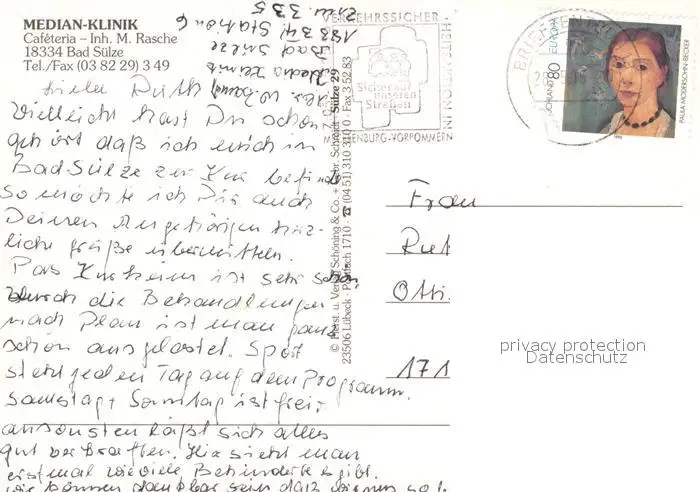 MEDIAN-KLINIK
Caféteria – Inh. M. Rasche
18334 Bad Sülze
Tel./Fax (03 82 29) 3 49
Liebe Ruth
Vielleicht hast Du schon
gehört daß ich mich in
Bad Sülze zur Kur befinde
So möchte ich Dir auch
Deinen Angehörigen herz-
liche Grüße übermitteln.
Das Kurheim ist sehr schön,
durch die Behandlungen
nach Plan ist man ganz
schön ausgelastet. Sport
steht jeden Tag auf dem Programm.
Samstag + Sonntag ist frei,
ansonsten läßt sich alles
gut verkraften. Hier sieht man
erstmal wieviele Behinderte es gibt.
wir können dankbar sein daß
Bad Sülze
18334 Station 6
Zim. 335
© Horst u. Verlag Schöning & Co. +
23506 Lübeck · Postfach 1710 · ☎ (04 51) 310 310 · Fax 3 52 83
VERKEHRSSICHER-
HEITSAKTION IN
MECKLENBURG-VORPOMMERN
Sicher auf
unseren
Straßen
80
EUROPA
PAULA MODERSOHN-BECKER
Frau
Rut
Otti.
171
privacy protection
Datenschutz